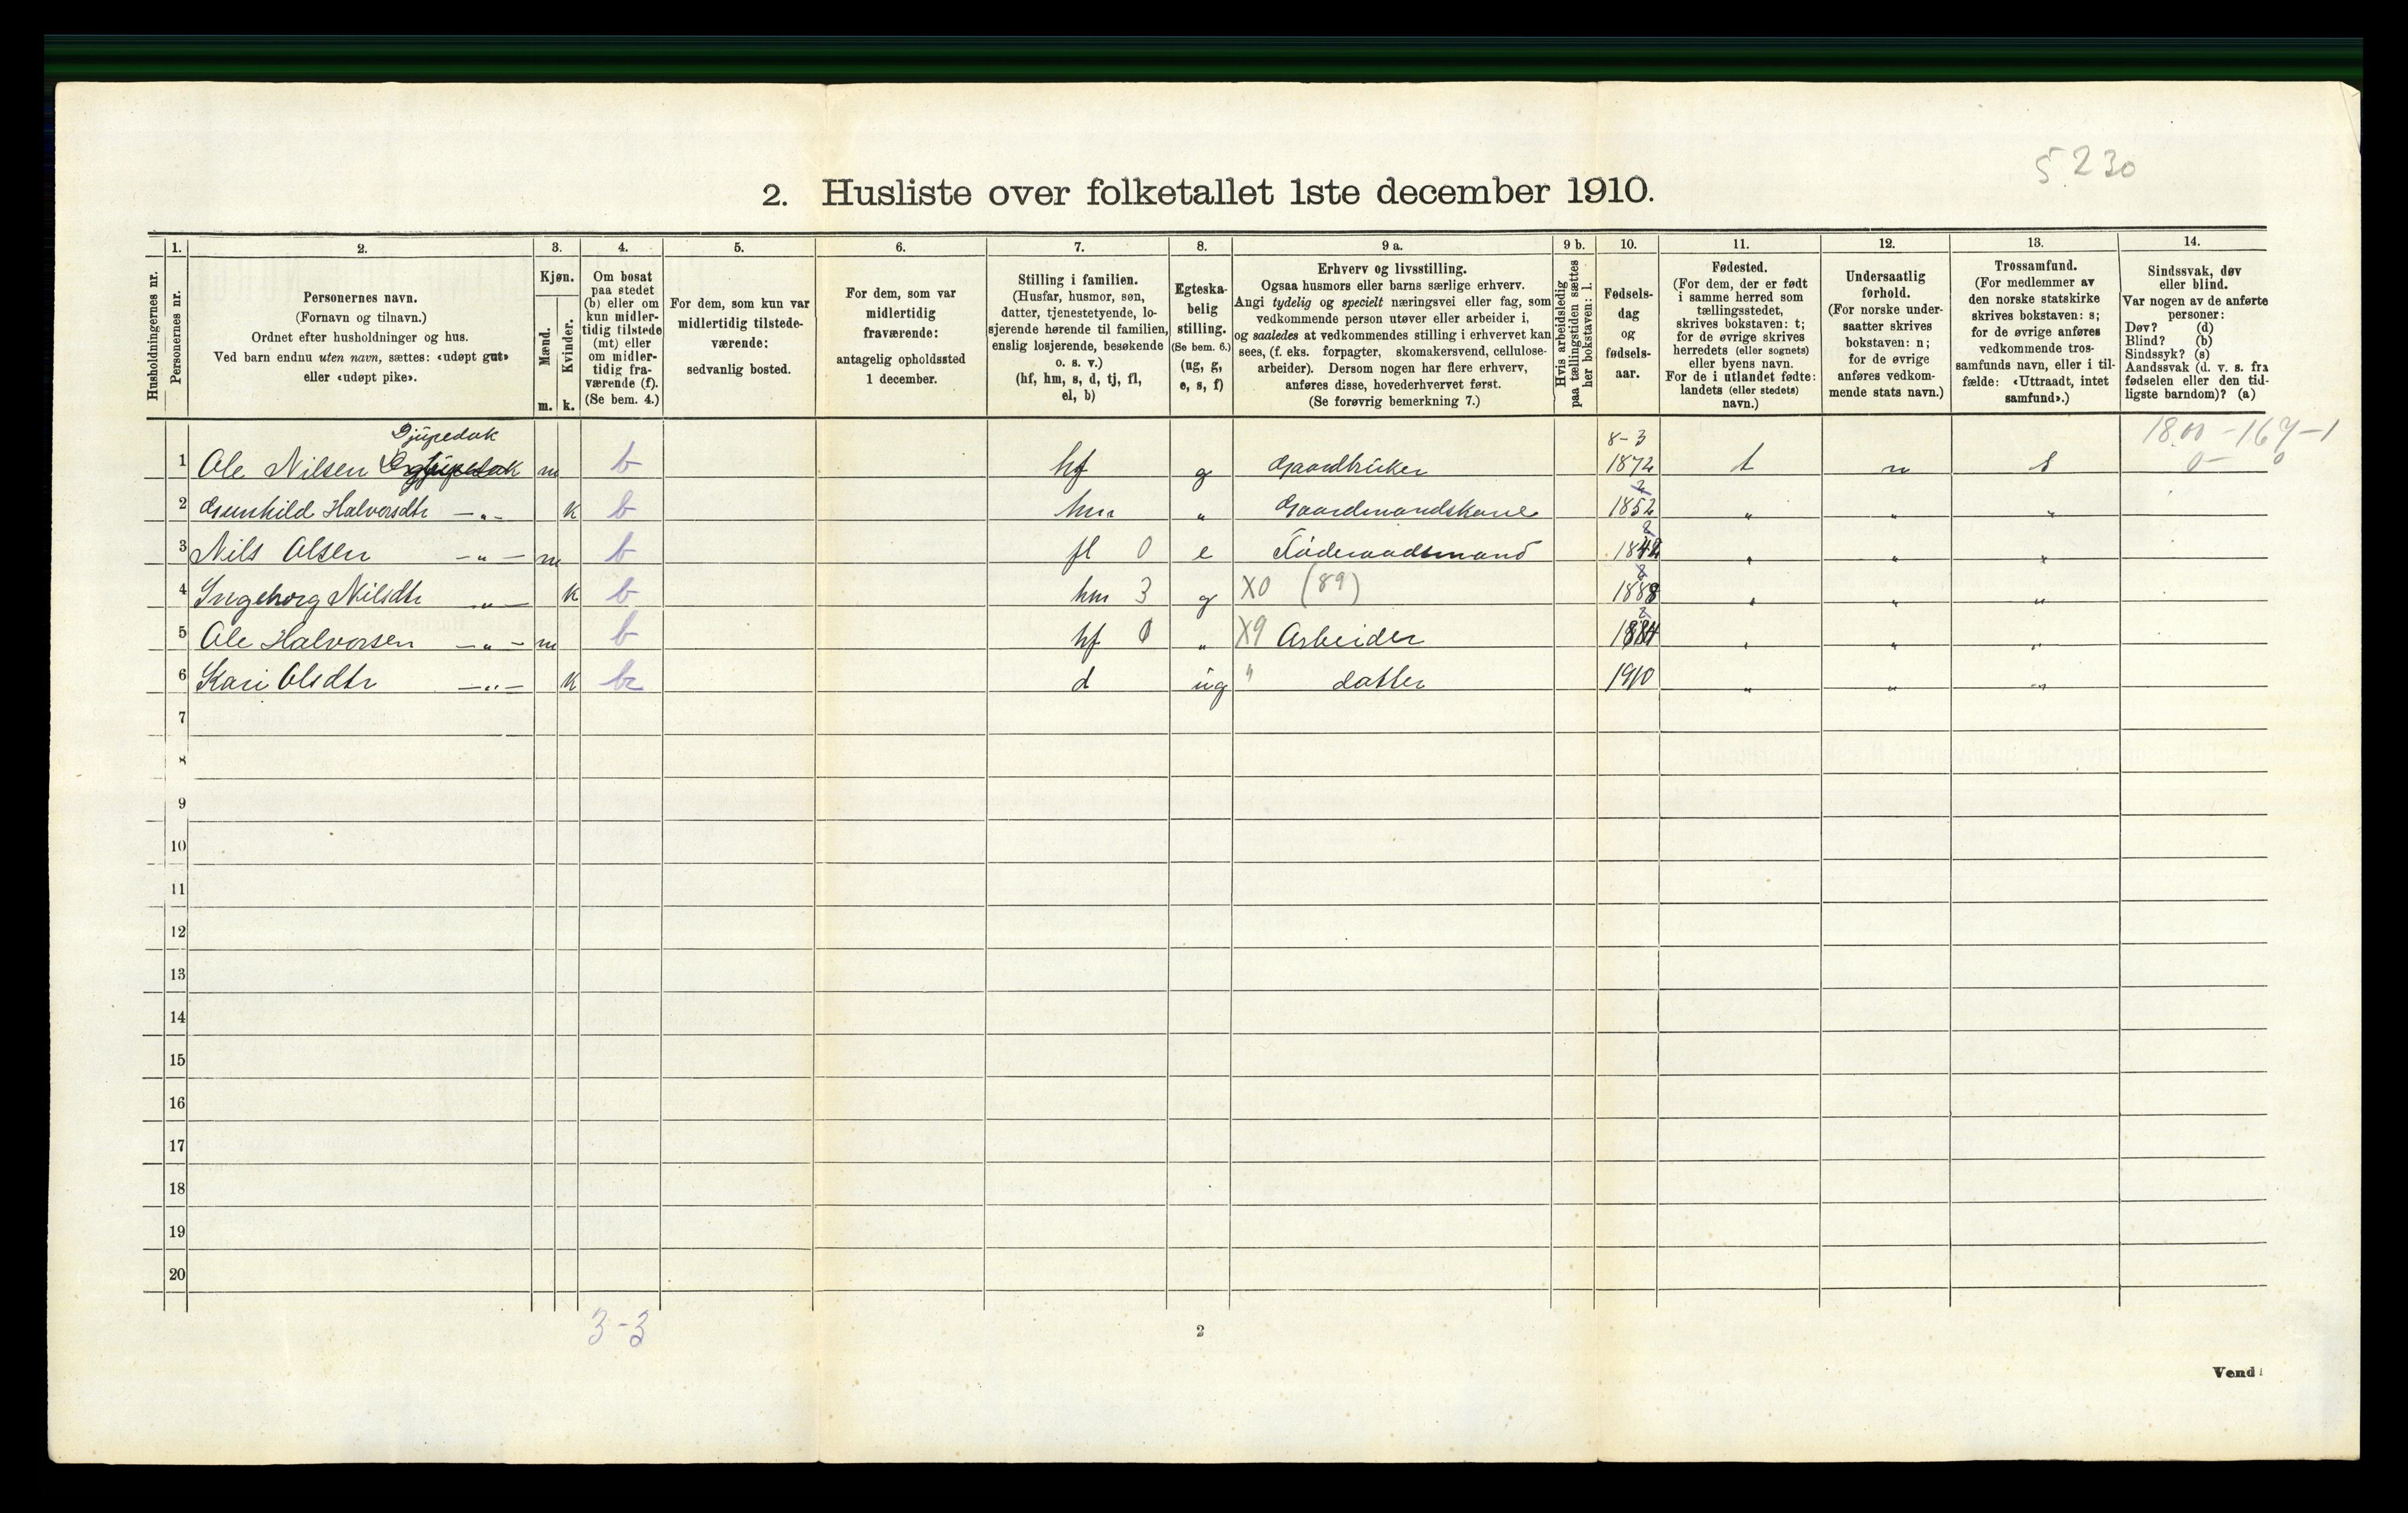 5230
2. Husliste over folketallet 1ste december 1910.
1. 2. 3. 4. 5. 6. 7. 8. 9 a. 9 b. 10. 11. 12. 13. 14.
Husholdningernes nr.
Personernes nr.
Personernes navn.
(Fornavn og tilnavn.)
Ordnet efter husholdninger og hus.
Ved barn endnu uten navn, sættes: «udøpt gut»
eller «udøpt pike».
Kjøn.
Mænd.
Kvinder.
m. k.
Om bosat
paa stedet
(b) eller om
kun midler-
tidig tilstede
(mt) eller
om midler-
tidig fra-
værende (f).
(Se bem. 4.)
For dem, som kun var
midlertidig tilstede-
værende:
sedvanlig bosted.
For dem, som var
midlertidig
fraværende:
antagelig opholdssted
1 december.
Stilling i familien.
(Husfar, husmor, søn,
datter, tjenestetyende, lo-
sjerende hørende til familien,
enslig losjerende, besøkende
o. s. v.)
(hf, hm, s, d, tj, fl,
el, b)
Egteska-
belig
stilling.
(Se bem. 6.)
(ug, g,
e, s, f)
Erhverv og livsstilling.
Ogsaa husmors eller barns særlige erhverv.
Angi tydelig og specielt næringsvei eller fag, som
vedkommende person utøver eller arbeider i,
og saaledes at vedkommendes stilling i erhvervet kan
sees, (f. eks. forpagter, skomakersvend, cellulose-
arbeider). Dersom nogen har flere erhverv,
anføres disse, hovederhvervet først.
(Se forøvrig bemerkning 7.)
Hvis arbeidsledig
paa tællingstiden sættes
her bokstaven: l.
Fødsels-
dag
og
fødsels-
aar.
Fødested.
(For dem, der er født
i samme herred som
tællingsstedet,
skrives bokstaven: t;
for de øvrige skrives
herredets (eller sognets)
eller byens navn.
For de i utlandet fødte:
landets (eller stedets)
navn.)
Undersaatlig
forhold.
(For norske under-
saatter skrives
bokstaven: n;
for de øvrige
anføres vedkom-
mende stats navn.)
Trossamfund.
(For medlemmer av
den norske statskirke
skrives bokstaven: s;
for de øvrige anføres
vedkommende tros-
samfunds navn, eller i til-
fælde: «Uttraadt, intet
samfund».)
Sindssvak, døv
eller blind.
Var nogen av de anførte
personer:
Døv? (d)
Blind? (b)
Sindssyk? (s)
Aandssvak (d. v. s. fra
fødselen eller den tid-
ligste barndom)? (a)
Djupedak 8-3 18.00-167-1
1 Ole Nilsen m b hf g Gaardbruker 1872 t n s 0- 0
2 Gunhild Halvorsdtr -"- k b hm " Gaardmandskone 1852 " " "
3 Nils Olsen -"- m b fl 0 e Föderaadsmand 1842 " " "
4 Ingeborg Nilsdtr -"- k b hm 3 g X0 (89) 1888 " " "
5 Ole Halvorsen -"- m b hf 0 " X9 Arbeider 1884 " " "
6 Kari Olsdtr -"- k b d ug " datter 1910 " " "
7
8
9
10
11
12
13
14
15
16
17
18
19
20
3-3
2
Vend